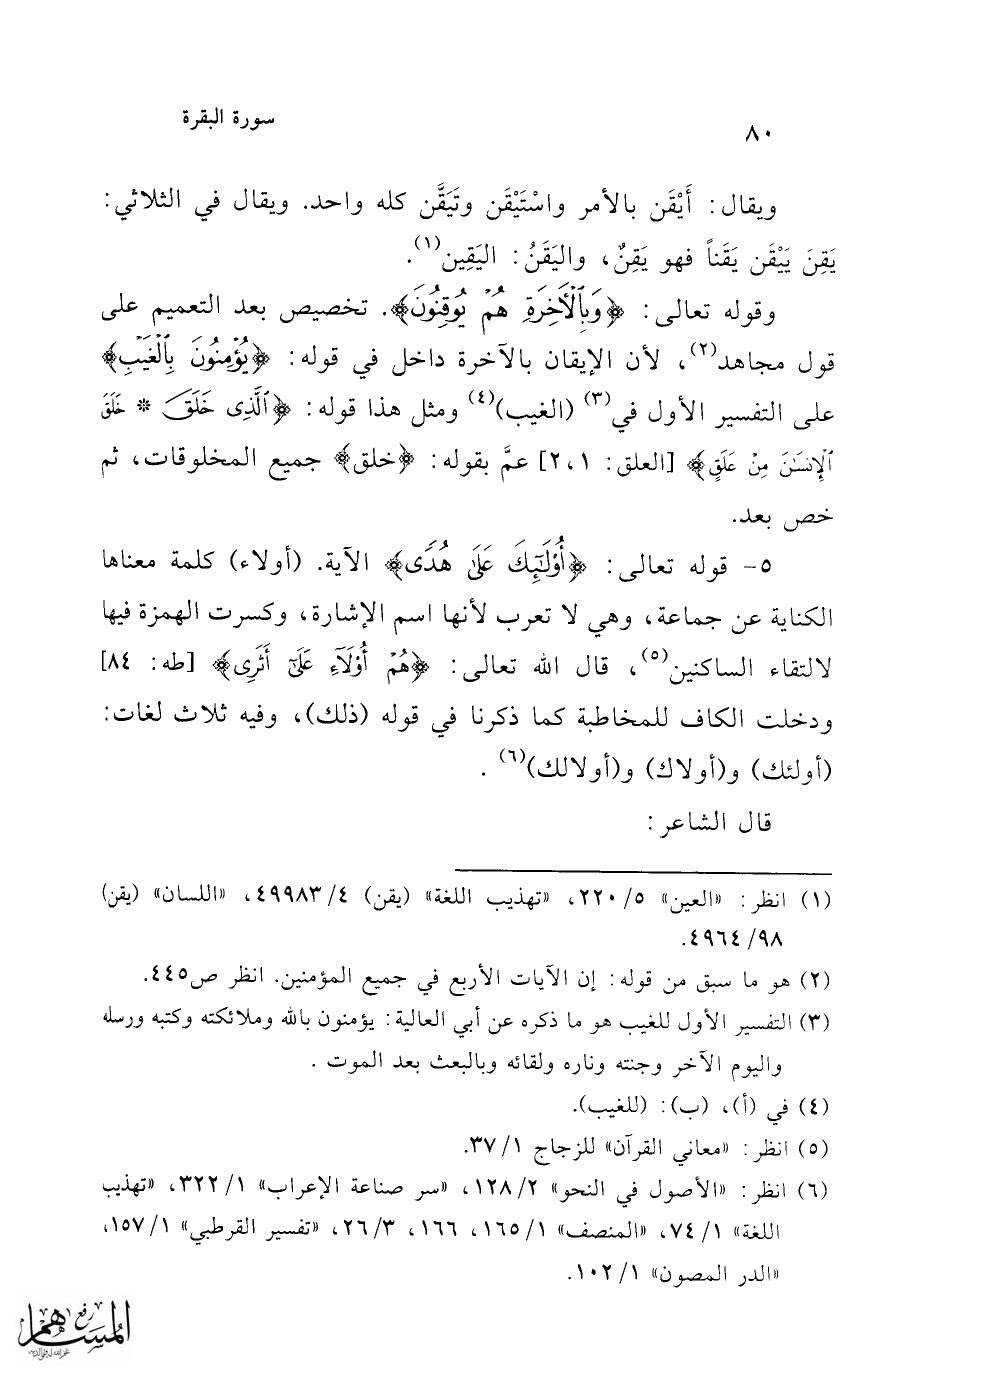 ٨٠
سورة البقرة
ويقال: أَيْقَن بالأمر واسْتَيْقَن وتَيَقَّن كله واحد. ويقال في الثلاثي:
يَقِنَ يَيْقَن يَقَناً فهو يَقِنٌ، واليَقَنُ: اليَقِين(١).
وقوله تعالى: ﴿وَبِٱلْأَخِرَةِ هُمْ يُوقِنُونَ﴾. تخصيص بعد التعميم على
قول مجاهد(٢)، لأن الإيقان بالآخرة داخل في قوله: ﴿يُؤْمِنُونَ بِٱلْغَيْبِ﴾
على التفسير الأول في(٣) (الغيب)(٤) ومثل هذا قوله: ﴿ٱلَّذِى خَلَقَ * خَلَقَ
ٱلْإِنسَٰنَ مِنْ عَلَقٍ﴾ [العلق: ١،٢] عمَّ بقوله: ﴿خلق﴾ جميع المخلوقات، ثم
خص بعد.
٥- قوله تعالى: ﴿أُوْلَٰٓئِكَ عَلَىٰ هُدًى﴾ الآية. (أولاء) كلمة معناها
الكناية عن جماعة، وهي لا تعرب لأنها اسم الإشارة، وكسرت الهمزة فيها
لالتقاء الساكنين(٥)، قال الله تعالى: ﴿هُمْ أُوْلَآءِ عَلَىٰٓ أَثَرِى﴾ [طه: ٨٤]
ودخلت الكاف للمخاطبة كما ذكرنا في قوله (ذلك)، وفيه ثلاث لغات:
(أولئك) و(أولاك) و(أولالك)(٦) .
قال الشاعر:
(١) انظر: «العين» ٥/ ٢٢٠، «تهذيب اللغة» (يقن) ٤/ ٤٩٩٨٣، «اللسان» (يقن)
٩٨/ ٤٩٦٤.
(٢) هو ما سبق من قوله: إن الآيات الأربع في جميع المؤمنين. انظر ص٤٤٥.
(٣) التفسير الأول للغيب هو ما ذكره عن أبي العالية: يؤمنون بالله وملائكته وكتبه ورسله
واليوم الآخر وجنته وناره ولقائه وبالبعث بعد الموت .
(٤) في (أ)، (ب): (للغيب).
(٥) انظر: «معاني القرآن» للزجاج ١/ ٣٧.
(٦) انظر: «الأصول في النحو» ٢/ ١٢٨، «سر صناعة الإعراب» ١/ ٣٢٢، «تهذيب
اللغة» ١/ ٧٤، «المنصف» ١/ ١٦٥، ١٦٦، ٣/ ٢٦، «تفسير القرطبي» ١/ ١٥٧،
«الدر المصون» ١/ ١٠٢.
رفع
المساهم